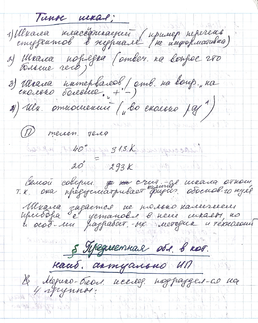 Типы шкал:
1) Шкала классификаций (пример перечень
студентов в журнале (не информативно)
2) Шкала порядка (отвеч. на вопрос что
больше чего)
3) Шкала интервалов (отв. на вопр. на
сколько больше, „+ -")
4) Шк отношений („во сколько раз")
П темп. тела
40° 313К
20° = 293К
Самой соверш. счит-ся шкала отнош
т.к. она предусматривает обоснов нуля
Шкала задается не только наличием
прибора с установл в нем шкалы, но
и особ-ми разработ. методик и технологий
§ Предметная обл. в кот.
наиб. актуально ИП
исслед подраздел-ся на
4 группы: